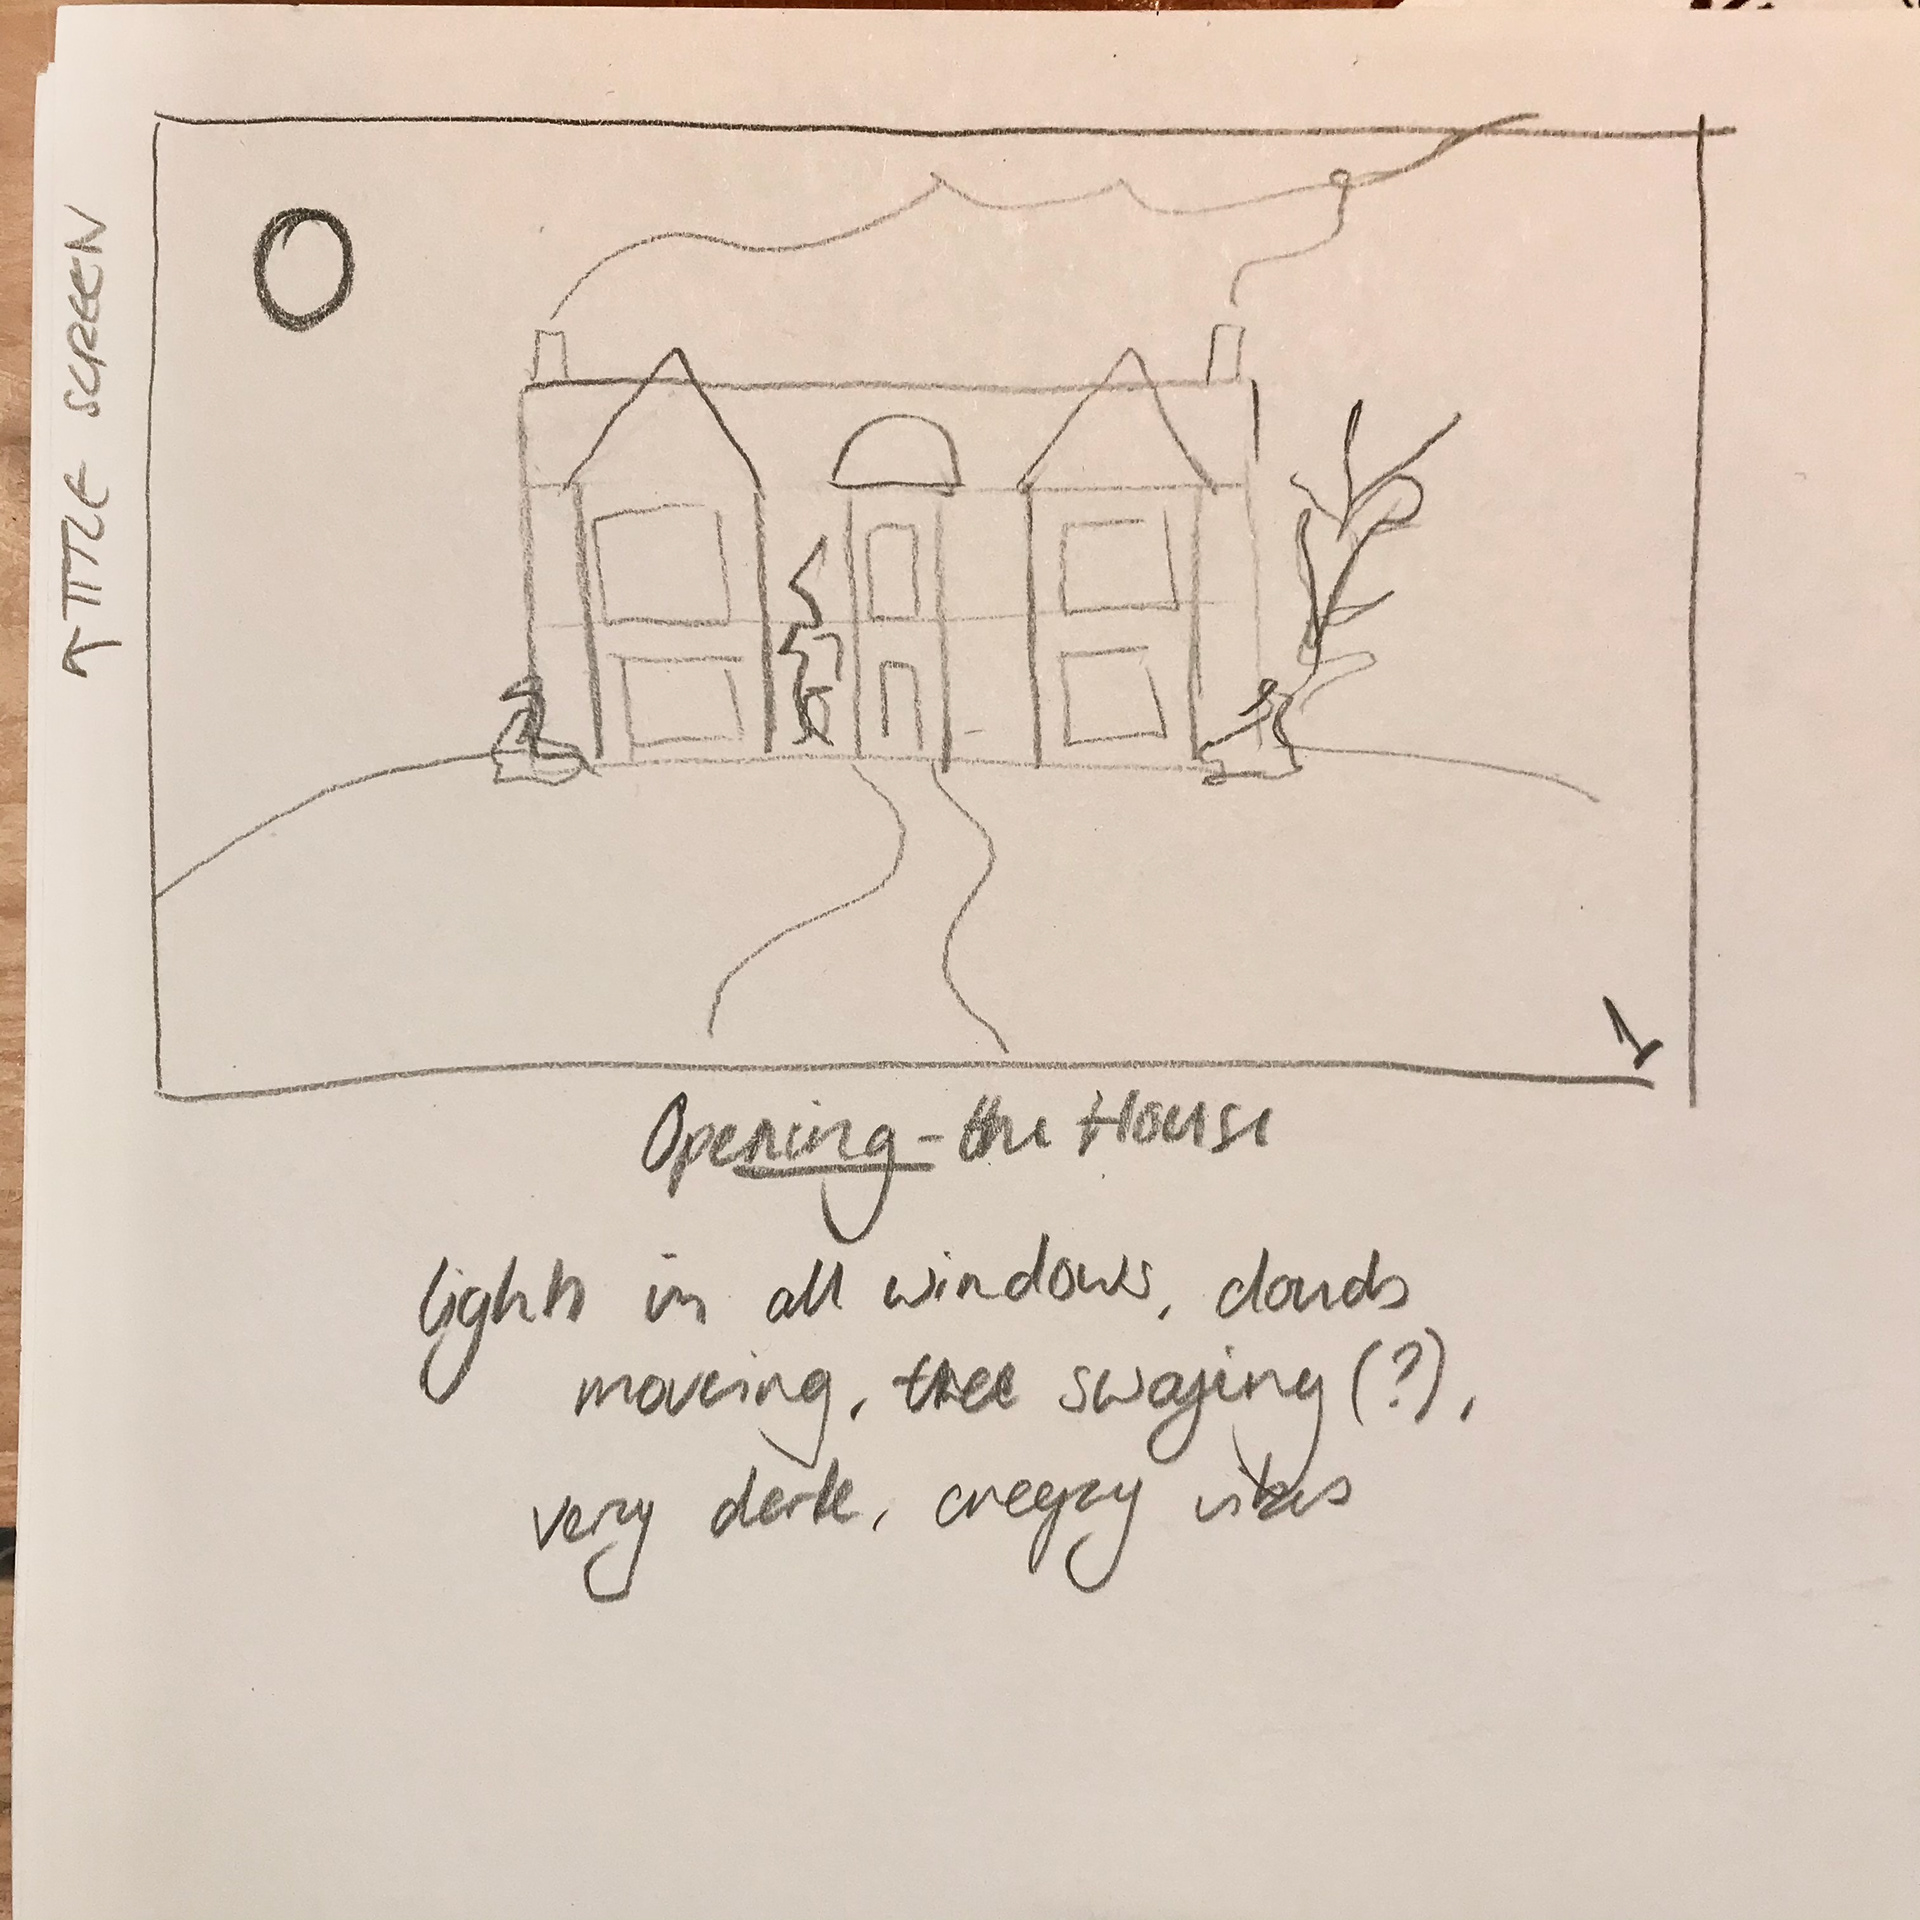 ↖ TITLE SCREEN
1
Opening - the House
lights in all windows, clouds
moving, tree swaying (?),
very dark, creepy vibes